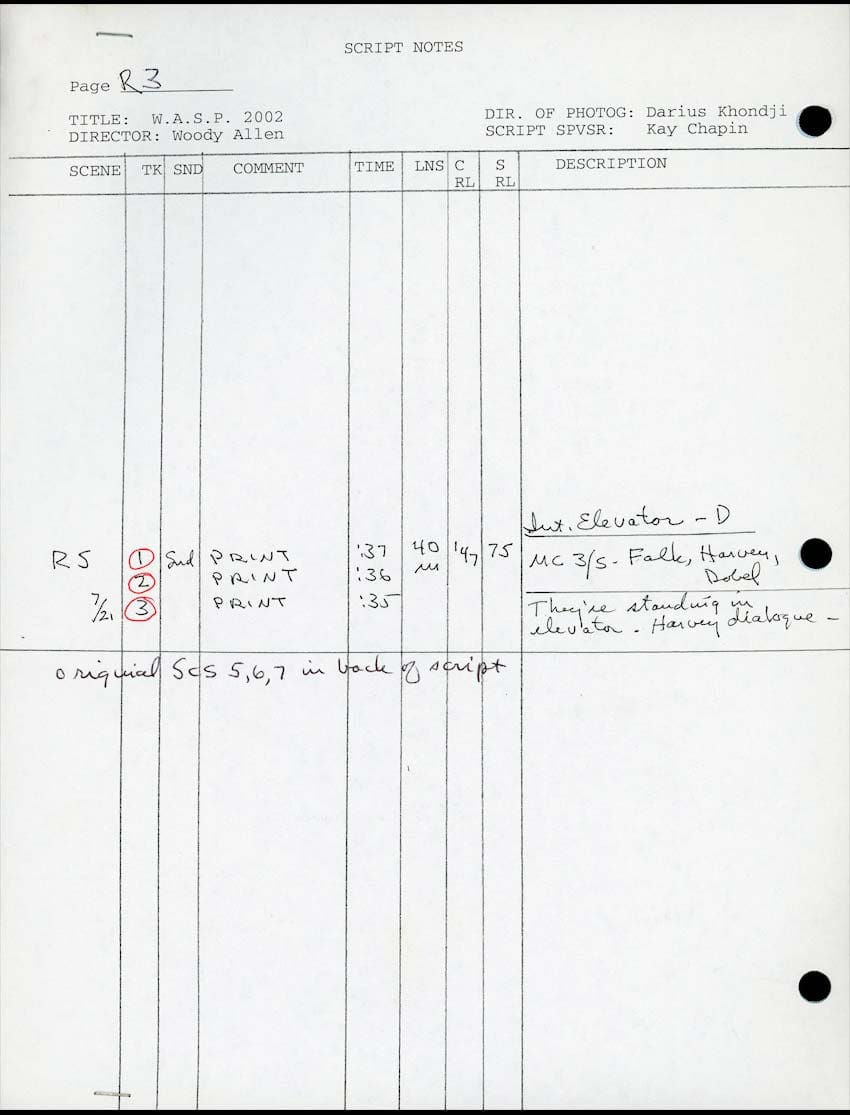 SCRIPT NOTES
Page R3
TITLE: W.A.S.P. 2002
DIRECTOR: Woody Allen
DIR. OF PHOTOG: Darius Khondji
SCRIPT SPVSR: Kay Chapin
SCENE TK SND COMMENT TIME LNS C RL S RL DESCRIPTION
Int. Elevator - D
R5 1 Snd PRINT :37 40 '47 75 MC 3/S - Falk, Harvey,
2 PRINT :36 m Dobel
7/21 3 PRINT :35 They're standing in
elevator. Harvey dialogue -
original Scs 5,6,7 in back of script